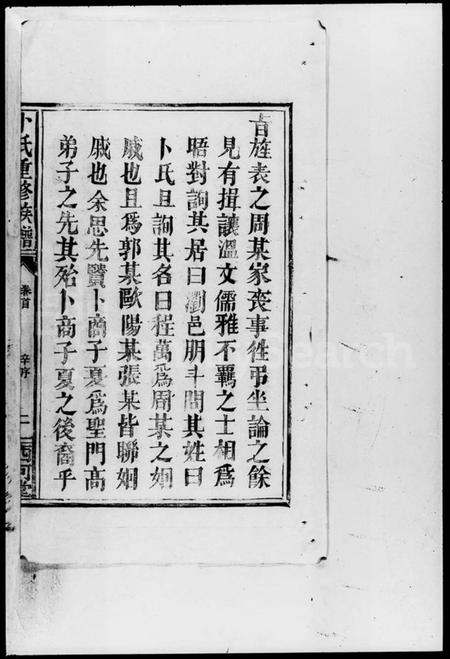 旨旌表之周某家丧事徃弔坐論之餘
見有揖讓溫文儒雅不羈之士相爲
晤對詢其居曰瀏邑朋斗問其姓曰
卜氏且詢其名曰程萬爲周某之姻
戚也且爲郭某歐陽某張某皆聯姻
戚也余思先賢卜商子夏爲聖門高
弟子之先其殆卜商子夏之後裔乎
卜氏重修族譜
卷首
序
二
西河堂